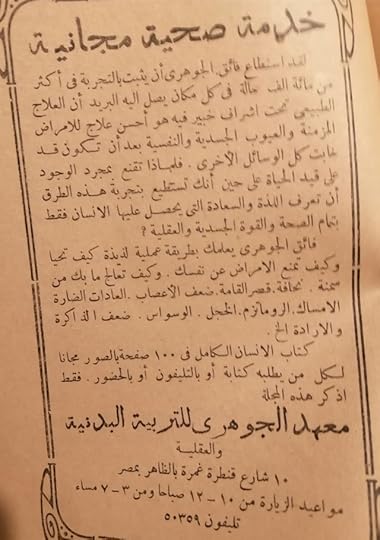 خدمة صحية مجانية
لقد استطاع فائق الجوهرى أن يثبت بالتجربة فى أكثر
من مائة الف حالة فى كل مكان يصل اليه البريد أن العلاج
الطبيعى تحت اشراف خبير فيه هو أحسن علاج للامراض
المزمنة والعيوب الجسدية والنفسية بعد أن تكون قد
خابت كل الوسائل الأخرى . فلماذا تقنع بمجرد الوجود
على قيد الحياة على حين أنك تستطيع بتجربة هذه الطرق
أن تعرف اللذة والسعادة التى يحصل عليها الانسان فقط
بتمام الصحة والقوة الجسدية والعقلية ؟
فائق الجوهرى يعلمك بطريقة عملية لذيذة كيف تحيا
وكيف تمنع الامراض عن نفسك . وكيف تعالج ما بك من
سمنة . نحافة . قصر القامة . ضعف الأعصاب . العادات الضارة
الامساك . الروماتزم . الخجل . الوسواس . ضعف الذاكرة
والارادة الخ .
كتاب الانسان الكامل فى ١٠٠ صفحة بالصور مجانا
لكل من يطلبه كتابة أو بالتليفون أو بالحضور . فقط
اذكر هذه المجلة
معهد الجوهرى للتربية البدنية
والعقلية
١٠ شارع قنطرة غمرة بالظاهر بمصر
مواعيد الزيارة من ١٠ – ١٢ صباحا ومن ٣ – ٧ مساء
تليفون ٥٠٣٥٩